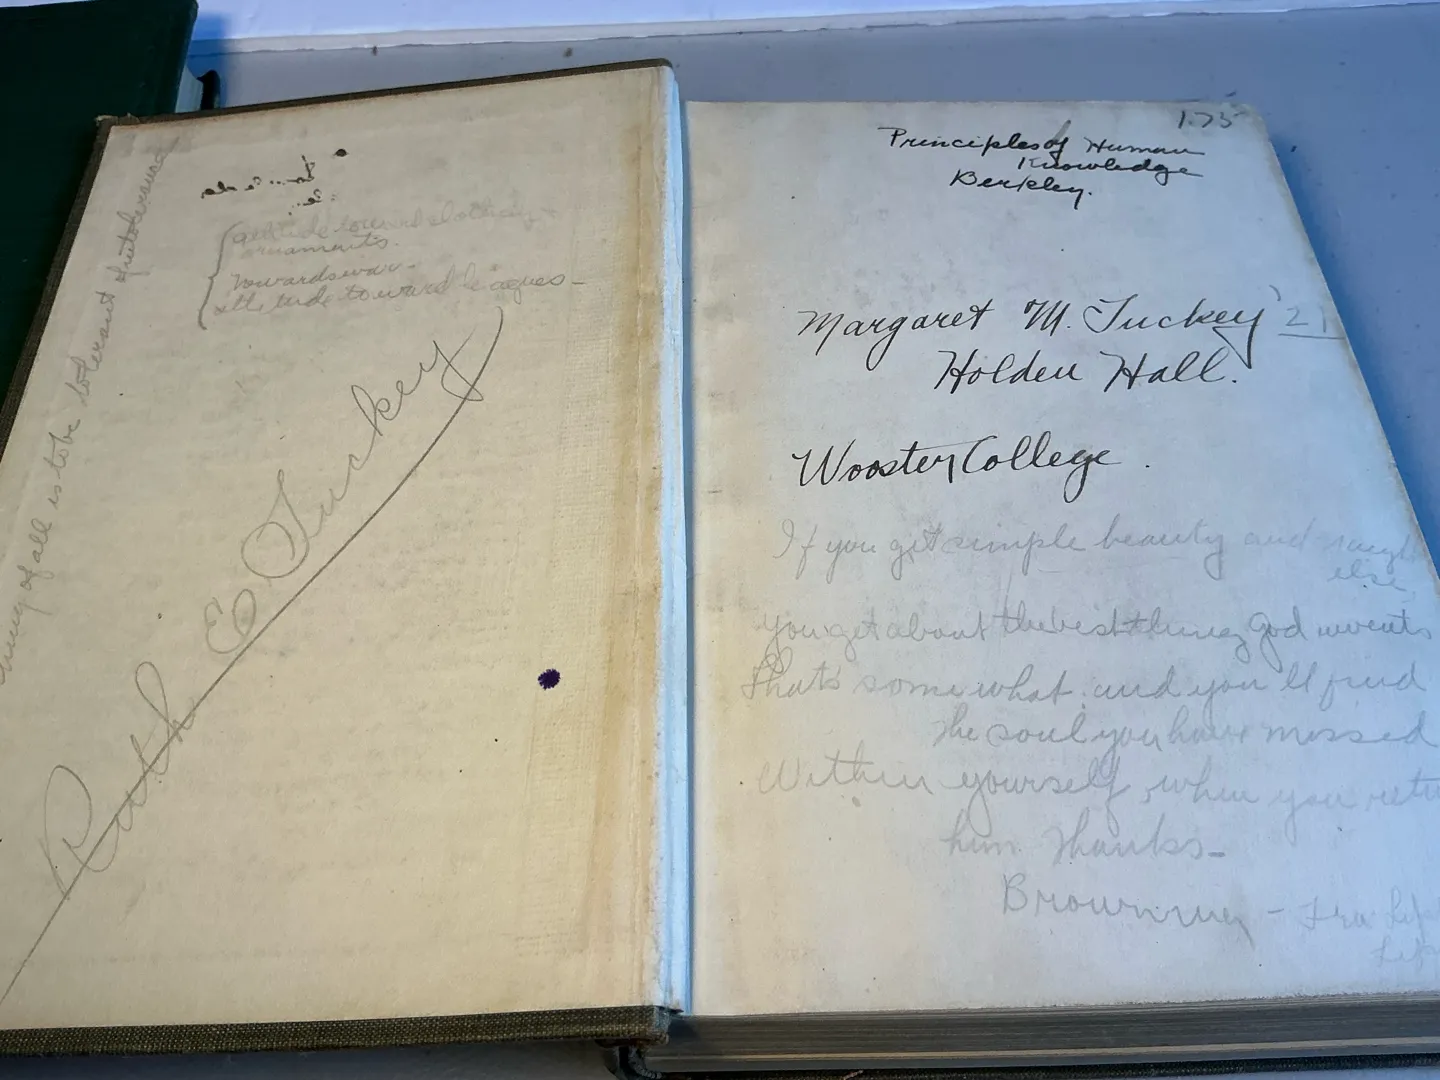 of all is to be tolerant of intolerance
attitude toward clothing +
ornaments.
Towards war -
attitude toward leagues -
Ruth E Tuckey
1.75
Principles of Human
Knowledge
Berkley.
Margaret M. Tuckey '21
Holden Hall.
Wooster College.
If you get simple beauty and naught
else,
You get about the best thing God invents
That's somewhat. and you'll find
the soul you have missed
Within yourself, when you retu
him thanks-
Browning - Fra Lip
Lip